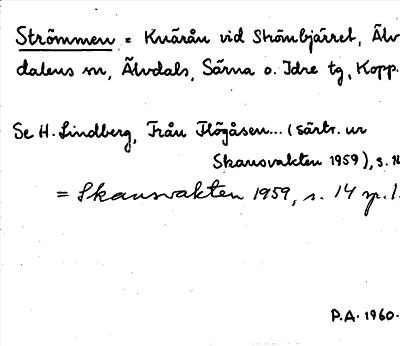 Strömmen = Knärån vid Strömbjärret, Älv
dalens sn, Älvdals, Särna o. Idre tg, Kopp.
Se H. Lindberg, Från Flögåsen... (särtr. ur
Skansvakten 1959), s. 14
= Skansvakten 1959, s. 14 sp. 1.
P.A. 1960.